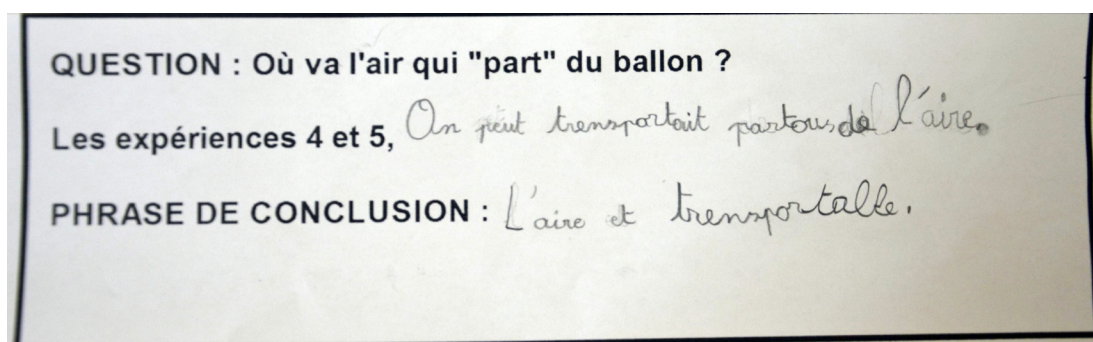 QUESTION : Où va l'air qui "part" du ballon ?
Les expériences 4 et 5, On peut transportait partous de l'aire.
PHRASE DE CONCLUSION : L'aire et trensportalle.